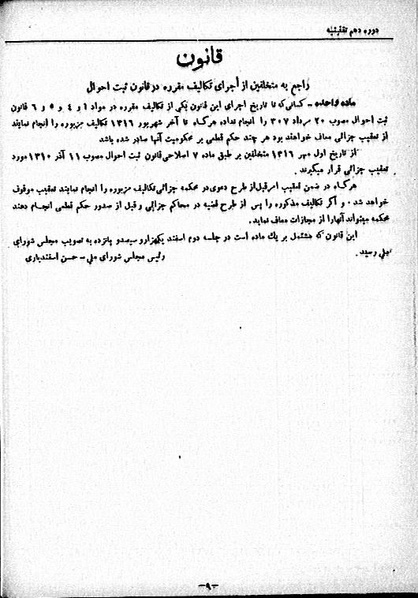 دوره دهم تقنینیه
قانون
راجع به متخلفین از اجرای تکالیف مقرره در قانون ثبت احوال
ماده واحده - کسانی که تا تاریخ اجرای این قانون یکی از تکالیف مقرره در مواد ۱ و ٤ و ٥ و ٦ قانون
ثبت احوال مصوب ۲۰ مرداد ۳۰۷ را انجام نداده هرگاه تا آخر شهریور ۱۳۱٦ تکالیف مزبوره را انجام نمایند
از تعقیب جزائی معاف خواهند بود هر چند حکم قطعی بر محکومیت آنها صادر شده باشد
از تاریخ اول مهر ۱۳۱٦ متخلفین بر طبق ماده ۷ اصلاحی قانون ثبت احوال مصوب ۱۱ آذر ۱۳۱۰ مورد
تعقیب جزائی قرار میگیرند .
هرگاه در ضمن تعقیب امر قبل از طرح دعوی در محکمه جزائی تکالیف مزبوره را انجام نمایند تعقیب موقوف
خواهد شد - و اگر تکالیف مذکوره را پس از طرح قضیه در محاکم جزائی و قبل از صدور حکم قطعی انجام دهند
محکمه میتواند آنها را از مجازات معاف نماید .
این قانون که مشتمل بر یك ماده است در جلسه دوم اسفند یکهزار و سیصد و پانزده به تصویب مجلس شورای
ملی رسید . رئیس مجلس شورای ملی - حسن اسفندیاری
-۹-